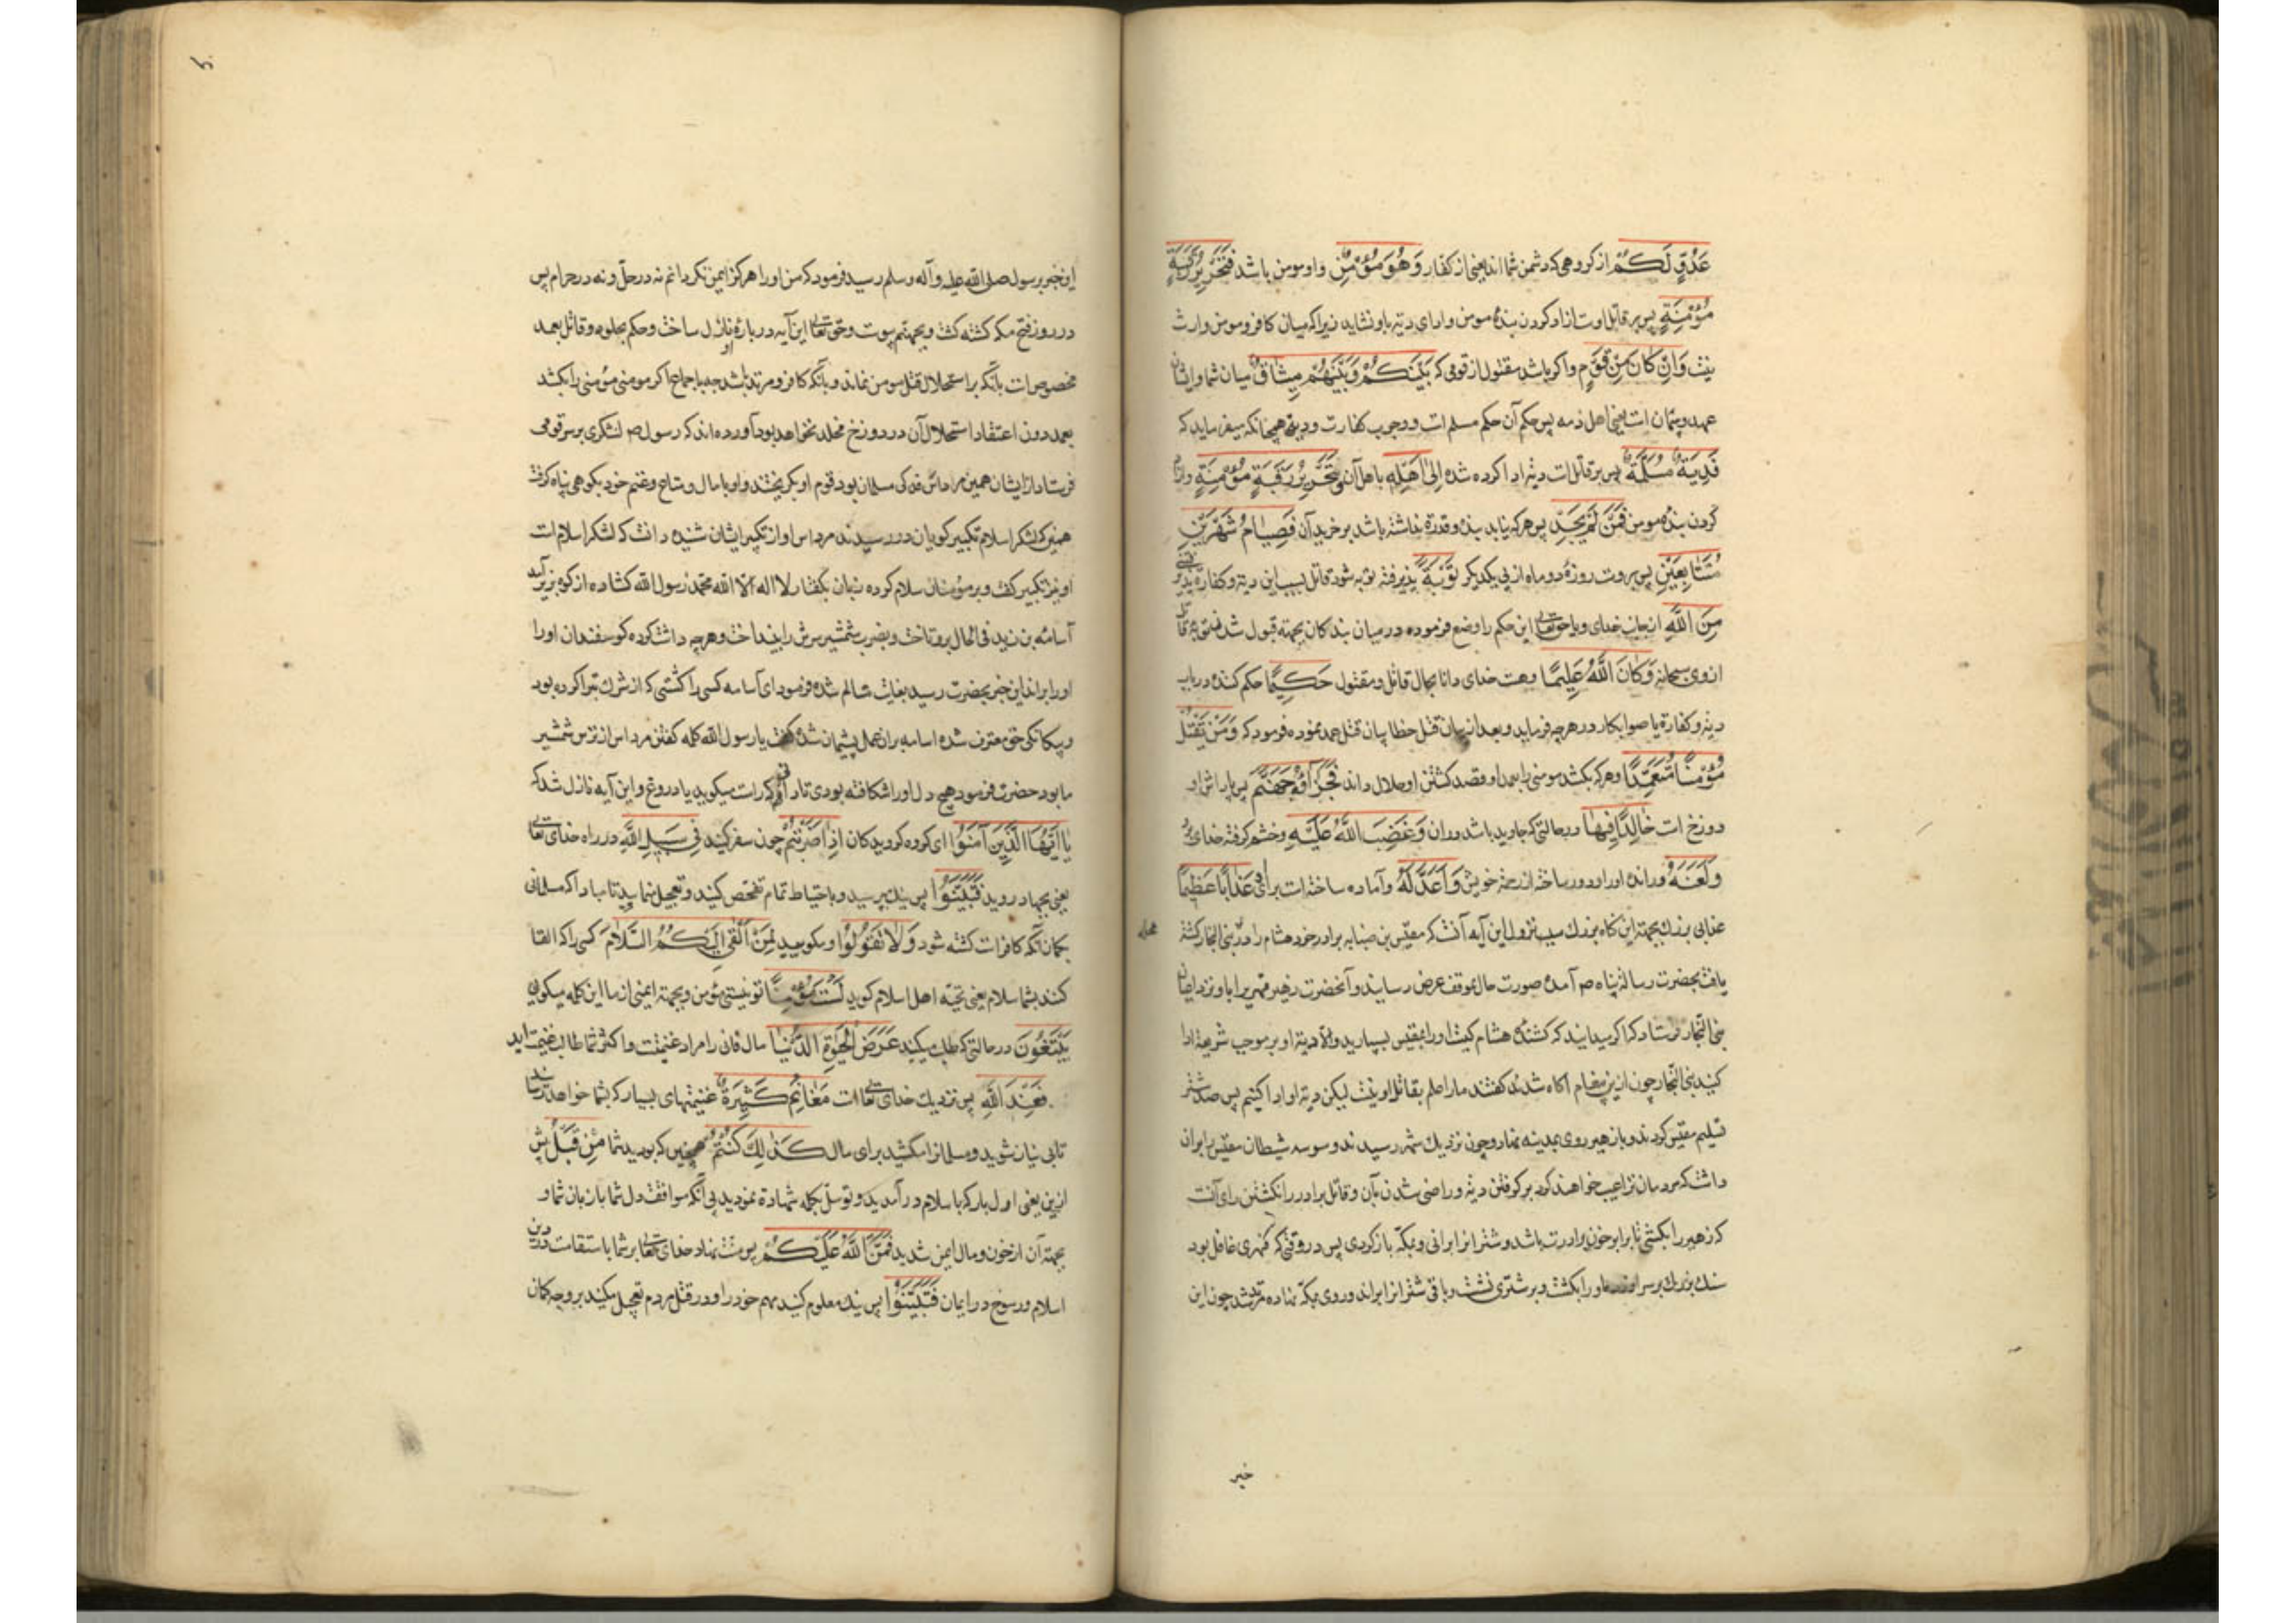 عَدُوٍّ لَكُمْ از کروهی که دشمن شما اند یعنی از کفار وَهُوَ مُؤْمِنٌ واو مومن باشد فَتَحْرِيرُ رَقَبَةٍ
مُؤْمِنَةٍ پس بر قاتل اوست ازاد کردن بندهٔ مومن و ادای دیته باو نشاید زیرا که میان کافر و مومن وارث
نیست وَإِنْ كَانَ مِنْ قَوْمٍ واکر باشد مقتول از قومی که بَيْنَكُمْ وَبَيْنَهُمْ مِيثَاقٌ میان شما و ایشان
عهد و پیمان است یعنی اهل ذمه پس حکم آن حکم مسلم است در وجوب کفارت و دیة همچنانکه میفرماید که
فَدِيَةٌ مُسَلَّمَةٌ پس بر قاتل است دیة ادا کرده شده إِلَى أَهْلِهِ باهل آن وَتَحْرِيرُ رَقَبَةٍ مُؤْمِنَةٍ وازاد
کردن بندهٔ مومن فَمَنْ لَمْ يَجِدْ پس هر که نیابد بنده و قدرة نداشته باشد بر خریدن آن فَصِيَامُ شَهْرَيْنِ
مُتَتَابِعَيْنِ پس بروست روزهٔ دو ماه از پی یکدیکر تَوْبَةً پذیرفته توبه شود قاتل بسبب این دیة و کفارة
مِنَ اللَّهِ از جانب خدای ویا حق تعالی این حکم را وضع فرموده در میان بندکان بجهته قبول شدن توبهٔ قاتل
ازوی سبحانه وَكَانَ اللَّهُ عَلِيمًا وهست خدای دانا بحال قاتل و مقتول حَكِيمًا حکم کننده در باب
دیة و کفارة یا صوابکار در هر چه فرماید و بعد از بیان قتل خطا بیان قتل عمد نموده فرمود که وَمَنْ يَقْتُلْ
مُؤْمِنًا مُتَعَمِّدًا وهر که بکشد مومنی را بعمد و قصد کشتن او حلال داند فَجَزَاؤُهُ جَهَنَّمُ پس پاداش او
دوزخ است خَالِدًا فِيهَا در حالتی که جاوید باشد دران وَغَضِبَ اللَّهُ عَلَيْهِ وخشم کرفته خدای برو
وَلَعَنَهُ ورانده او را و دور ساخته از رحمة خویش وَأَعَدَّ لَهُ وآماده ساخته است برای وی عَذَابًا عَظِيمًا
عذابی بزرک بجهته این کناه بزرک سبب نزول این آیه آنست که مقیس بن ضبابه برادر خود هشام را در بنی النجار کشته
یافت بحضرت رسالة پناه صم آمده صورت حال بموقف عرض رسانید و آنحضرت زهیر فهری را با او نزد اعیان
بنی النجار فرستاد که اکر میدانید که کشندهٔ هشام کیست او را بمقیس بسپارید والا دیة او بر موجب شریعة ادا
کنید بنی النجار چون ازین پیغام آکاه شدند کفتند ما را علم بقاتل او نیست لیکن دیة او ادا کنیم پس صد شتر
تسلیم مقیس کردند و با زهیر روی بمدینه نهاد و چون نزدیک شهر رسیدند وسوسه شیطان مقیس را بران
داشت که مردمان ترا عیب خواهند کرد بر کرفتن دیة و راضی شدن بآن و قاتل برادر را نکشتن رای آنست
که زهیر را بکشی تا برابر خون برادرت باشد و شترانرا برانی و بمکه باز کردی پس در وقتی که فهری غافل بود
سنک بزرک بر سر او زد و او را بکشت و بر شتری نشست و باقی شترانرا براند و روی بمکه نهاده مرتد شد چون این
خبر
این خبر برسول صلی الله علیه وآله وسلم رسید فرمود که من او را هرکز ایمن نکردانم نه در حل و نه در حرام پس
در روز فتح مکه کشته کشت و بجهنم پیوست و حق تعالی این آیه در بارهٔ او نازل ساخت و حکم بخلود و قاتل بعمد
مخصوص است بآنکه براستحلال قتل مومن نماند و بآنکه کافر و مرتد باشد چه باجماع اکر مومنی مؤمنی را بکشد
بعمد دون اعتقاد استحلال آن در دوزخ مخلد نخواهد بود آورده اند که رسول صم لشکری بر سر قومی
فرستاد از ایشان همین مرداس فدکی مسلمان بود قوم او بکریختند و او با مال و متاع و غنم خود بکوهی پناه کرفت
همین که لشکر اسلام تکبیر کویان در رسیدند مرداس اواز تکبیر ایشان شنیده دانست که لشکر اسلام است
او نیز تکبیر کفت و بر مؤمنان سلام کرده زبان بکفتار لا اله الا الله محمد رسول الله کشاده از کوه بزیر آمد
اسامة بن زید فی الحال برو تاخت و بضرب شمشیر سرش را بینداخت و هر چه داشت کرده کوسفندان او را
او را براند این خبر بحضرت رسید بغایت متالم شده فرمود ای اسامه کسی را کشتی که از شرک تبرا کرده بود
و بیکانکی حق معترف شده اسامه بران عمل پشیمان شده کفت یا رسول الله کلمه کفتن مرداس از ترس شمشیر
ما بود حضرت فرمود هیچ دل او را شکافته بودی تا دانی که راست میکوید یا دروغ و این آیه نازل شد که
يَا أَيُّهَا الَّذِينَ آمَنُوا ای کروه کرویدکان إِذَا ضَرَبْتُمْ چون سفر کنید فِي سَبِيلِ اللَّهِ در راه خدای تعالی
یعنی بجهاد روید فَتَبَيَّنُوا پس نیک بپرسید و باحتیاط تمام تفحص کنید و تعجیل منمایید تا مبادا که مسلمانی
بکمان آنکه کافر است کشته شود وَلَا تَقُولُوا ومکویید لِمَنْ أَلْقَى إِلَيْكُمُ السَّلَامَ کسی را که القا
کند بشما سلام یعنی تحیّه اهل اسلام کوید لَسْتَ مُؤْمِنًا تو نیستی مؤمن و بجهتة ایمنی از ما این کلمه میکویی
تَبْتَغُونَ در حالتی که طلب میکنید عَرَضَ الْحَيَوةِ الدُّنْيَا مال فانی را مراد غنیمتست و اکثر شما طالب غنیمت اید
فَعِنْدَ اللَّهِ پس نزدیک خدای تعالی است مَغَانِمُ كَثِيرَةٌ غنیمتهای بسیار که بشما خواهد رسانید
تا بی نیاز شوید و مسلمانرا مکشید برای مال كَذَلِكَ كُنْتُمْ همچنین که بودید شما مِنْ قَبْلُ پیش
ازین یعنی اول بار که باسلام در آمدید و توسل بکلمه شهادة نمودید بی آنکه موافقت دل شما با زبان شما و
بجهته آن از خون و مال ایمن شدید فَمَنَّ اللَّهُ عَلَيْكُمْ پس منت نهاد خدای تعالی بر شما باستقامت در دین
اسلام و رسوخ در ایمان فَتَبَيَّنُوا پس نیک معلوم کنید مهم خود را و در قتل مردم تعجیل مکنید بر وجه کمان